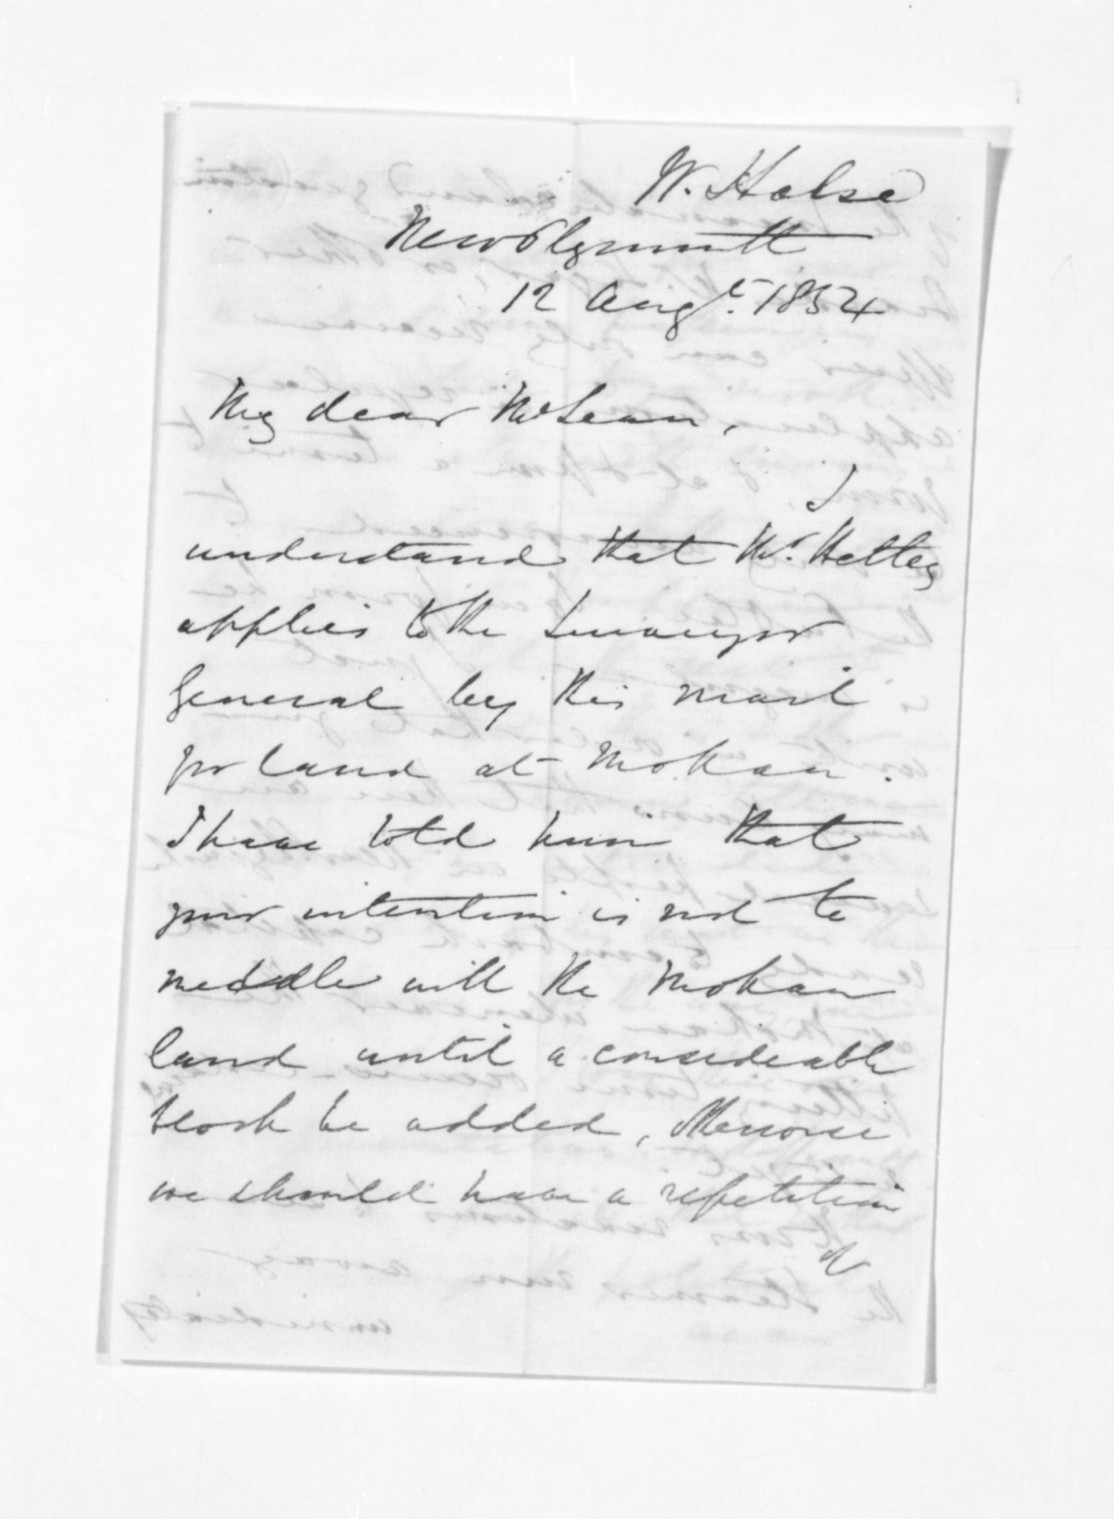 W. Halse
New Plymouth
12 Augt. 1854
My dear McLean,
I
understand that Mr. Hettey
applies to the Surveyor
General by this mail
for land at Mokau.
I have told him that
your intention is not to
meddle with the Mokau
land until a considerable
block be added, otherwise
we should have a repetition
of